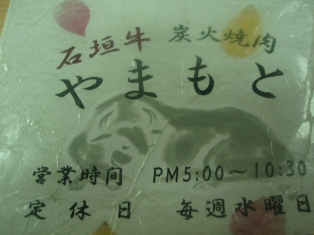 石垣牛 炭火焼肉
やまもと
営業時間 PM5:00～10:30
定休日 毎週水曜日